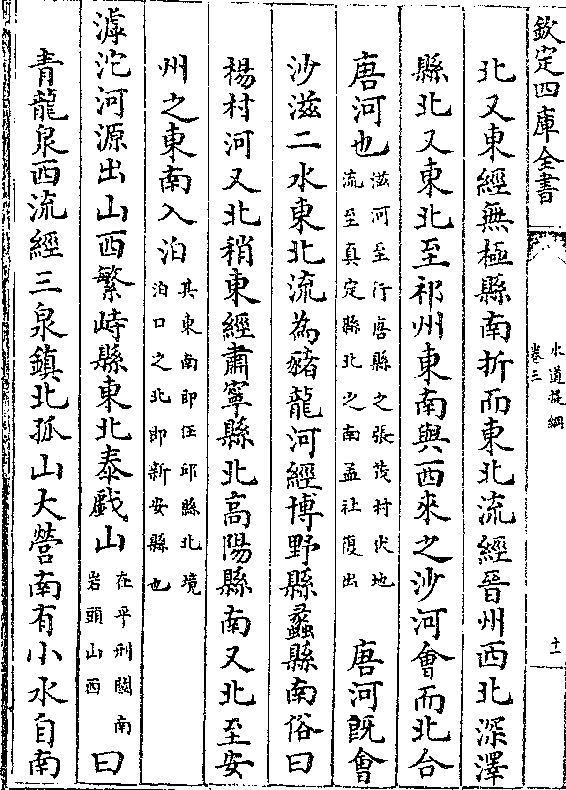 欽定四庫全書
水道提綱
卷三
十一
北又東經無極縣南折而東北流經晉州西北深澤
縣北又東北至祁州東南與西來之沙河會而北合
唐河也滋河至行唐縣之張茂村伏地流至真定縣北之南孟社復出唐河既會
沙滋二水東北流為豬龍河經博野縣蠡縣南俗曰
楊村河又北稍東經肅寧縣北高陽縣南又北至安
州之東南入泊其東南即任邱縣北境泊口之北即新安縣也
滹沱河源出山西繁峙縣東北泰戲山在平刑關南岩頭山西曰
青龍泉西流經三泉鎮北孤山大營南有小水自南